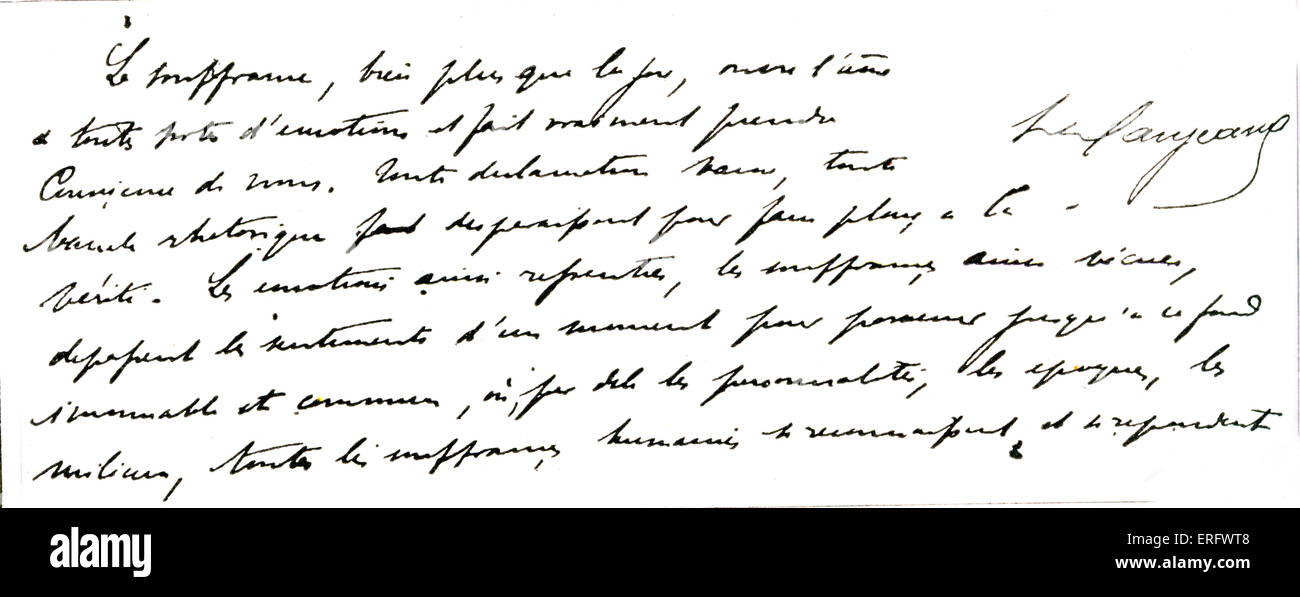 La souffrance, bien plus que la joie, ouvre l'âme
à toutes sortes d'émotions et fait vraiment prendre
Conscience de nous. Toute déclamation vaine, toute
banale rhétorique disparaissent pour faire place à la
vérité. Les émotions ainsi ressenties, les souffrances ainsi vécues,
dépassent les sentiments d'un moment pour parvenir jusqu'à ce fond
immuable et commun, où, par delà les personnalités, les époques, les
milieux, toutes les souffrances humaines se reconnaissent et se répondent
alamy
Image ID: ERFWT8
www.alamy.com